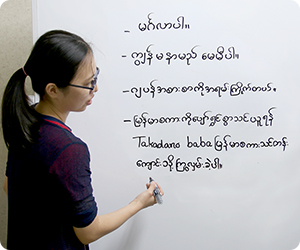 - မင်္ဂလာပါ။
- ကျွန်မနာမည် မေမီပါ။
- ဂျပန်အစားစာကိုအရမ်းကြိုက်တယ်။
- မြန်မာစကားကိုပျော်ရွှင်စွာသင်ယူရန်
Takadano baba မြန်မာစကားသင်တန်း
ကျောင်းသို့ကြွလှမ်းခဲ့ပါ။